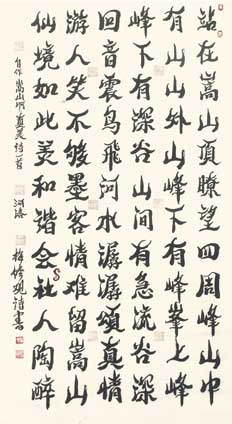 站在嵩山顶瞭望四周峰山中
有山山外山峰下有峰峯上峰
峰下有深谷山间有急流谷深
回音震鸟飞河水潺潺颂真情
游人笑不够墨客情难留嵩山
仙境如此美和谐会社人陶醉
自作嵩山真美诗一首 河洛 梅修现诗书